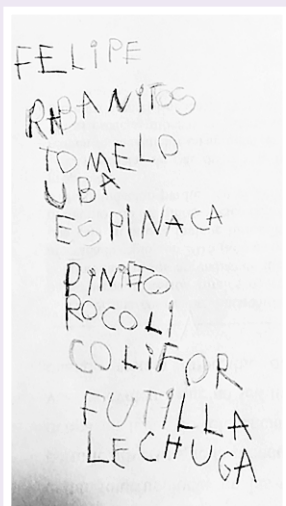 FELIPE
RABANITOS
TOMELO
UBA
ESPINACA
PINIETO
ROCOLI
COLIFOR
FUTILLA
LECHUGA